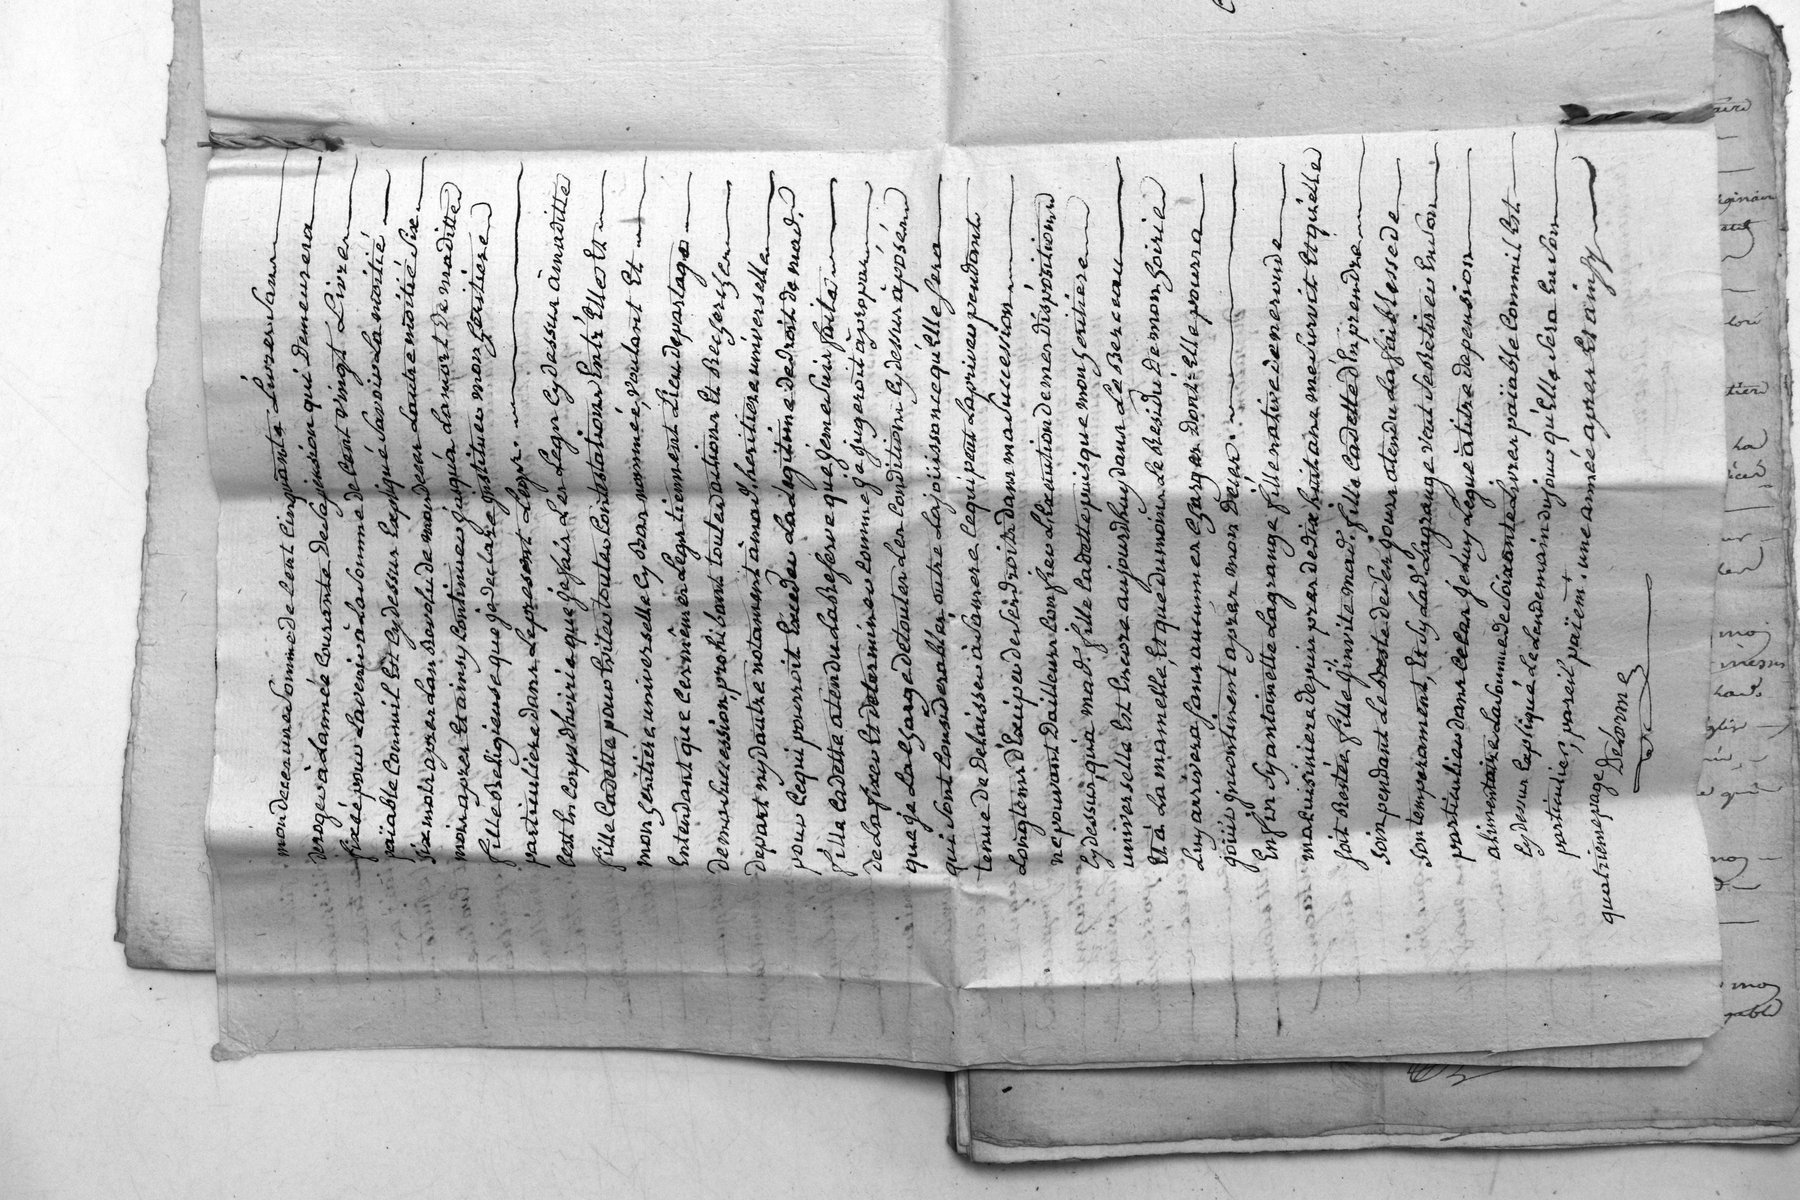 mon deceز une somme de Cent Cinquante Livres sans
deroger à Lannéé Courante de la pension qui demeurera
fixéé pour Lavenir à la somme de Cent vingt Livres
païable Comm'il Est Cy dessus Expliqué Savoir La moitié
Six mois apres dans Revolu de mon deces Lautre moitié Six
mois apres Et ainsy Continuer jusqu'à La mort de maditte
fille Religieuse que je declare jnstituer mon heritiere
particuliere dans Le present Legs.
C'est En Corps d'hoirie que je fais Les Legs Cy dessus à maditte
fille Cadette pour Eviter toutes Contestations Entr'Elle Et
mon heritiere universelle Cy bas nommée, voulant Et
Entendant que Ces mêmes Legs tiennent Lieu de partage
de ma succession, prohibant toutes actions Et Recherches
de part ny d'autre notamment à mad. heritiere universelle
pour Ce qui pourroit Exceder La Legitime de droit de mad.
fille Cadette atendu La Reserve que je me suis faite
de La fixer Et determiner Comme je Le jugerois à propos
que je La Charge de toutes Les Conditions Cy dessus aposéés
qui sont Considerables outre La joüissance qu'Elle sera
tenue de delaisser à sa mere Ce qui peut La priver pendant
Longtems d'Exiger des droits dans ma succession
ne pouvant D'ailleurs Confier L'Execution de mes dispositions
Cy dessus, qu'a mad. fille Cadette puisque mon heritiere
universelle Est Encore aujourdhuy dans Le Berceau
Et à La mamelle, Et que du moins Le Residu de mon hoirie
Luy arrivera sans aucunes charges Dont Elle pourra
joüir jncontinent apres mon deces.
Enfin Sy antoinette Lagrange fille native de neronde
ma Cuisiniere depuis pres de dix huit ans me survit Et qu'elle
soit Restéé fille j'invite mad. fille Cadette d'En prendre
Soin pendant Le Reste de ses jours atendu La faiblesse de
Son temperament, Et Sy Lad. Lagrange veut se Retirer En son
particulier dans Ce Cas je Luy Legue à titre de pension
alimentaire La somme de Soixante Livres païable Comm'il Est
Cy dessus Expliqué Le Lendemain du jour qu'Elle sera En son
particulier, pareil païemt. une annéé apres Et ainsy
quatrieme page Delorme